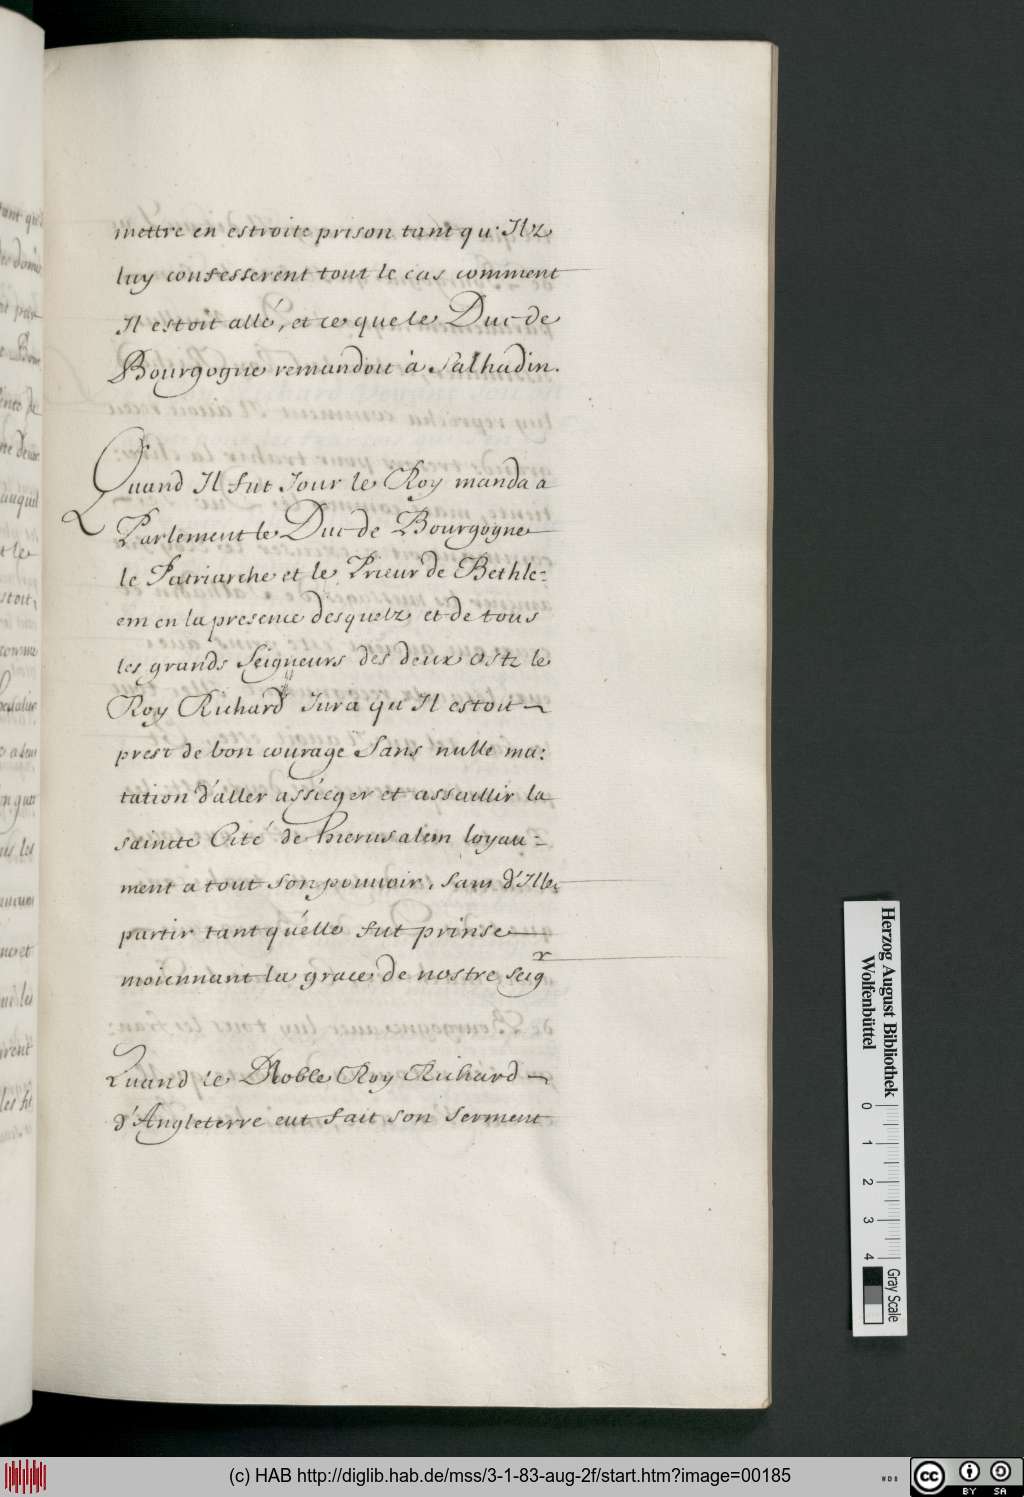 mettre en estroite prison tant qu'Ilz
luy confesserent tout le cas comment
Il estoit allé, et ce que le Duc de
Bourgogne remandoit à Salhadin.
Quand Il fut Jour le Roy manda a
Parlement le Duc de Bourgogne
le Patriarche et le Prieur de Bethle=
em en la presence desquelz et de tous
les grands Seigneurs des deux ostz le
Roy Richard Jura qu'Il estoit
prest de bon courage Sans nulle mu:
tation d'aller assieger et assaillir la
saincte Cité de hierusalem loyau=
ment a tout son pouvoir, sans d'Illec
partir tant qu'elle fut prinse
moiennant la grace de nostre seigr
Quand le Noble Roy Richard
d'Angleterre eut fait son serment
Herzog August Bibliothek
Wolfenbüttel
0 1 2 3 4
Gray Scale
(c) HAB http://diglib.hab.de/mss/3-1-83-aug-2f/start.htm?image=00185
WDB
cc BY SA